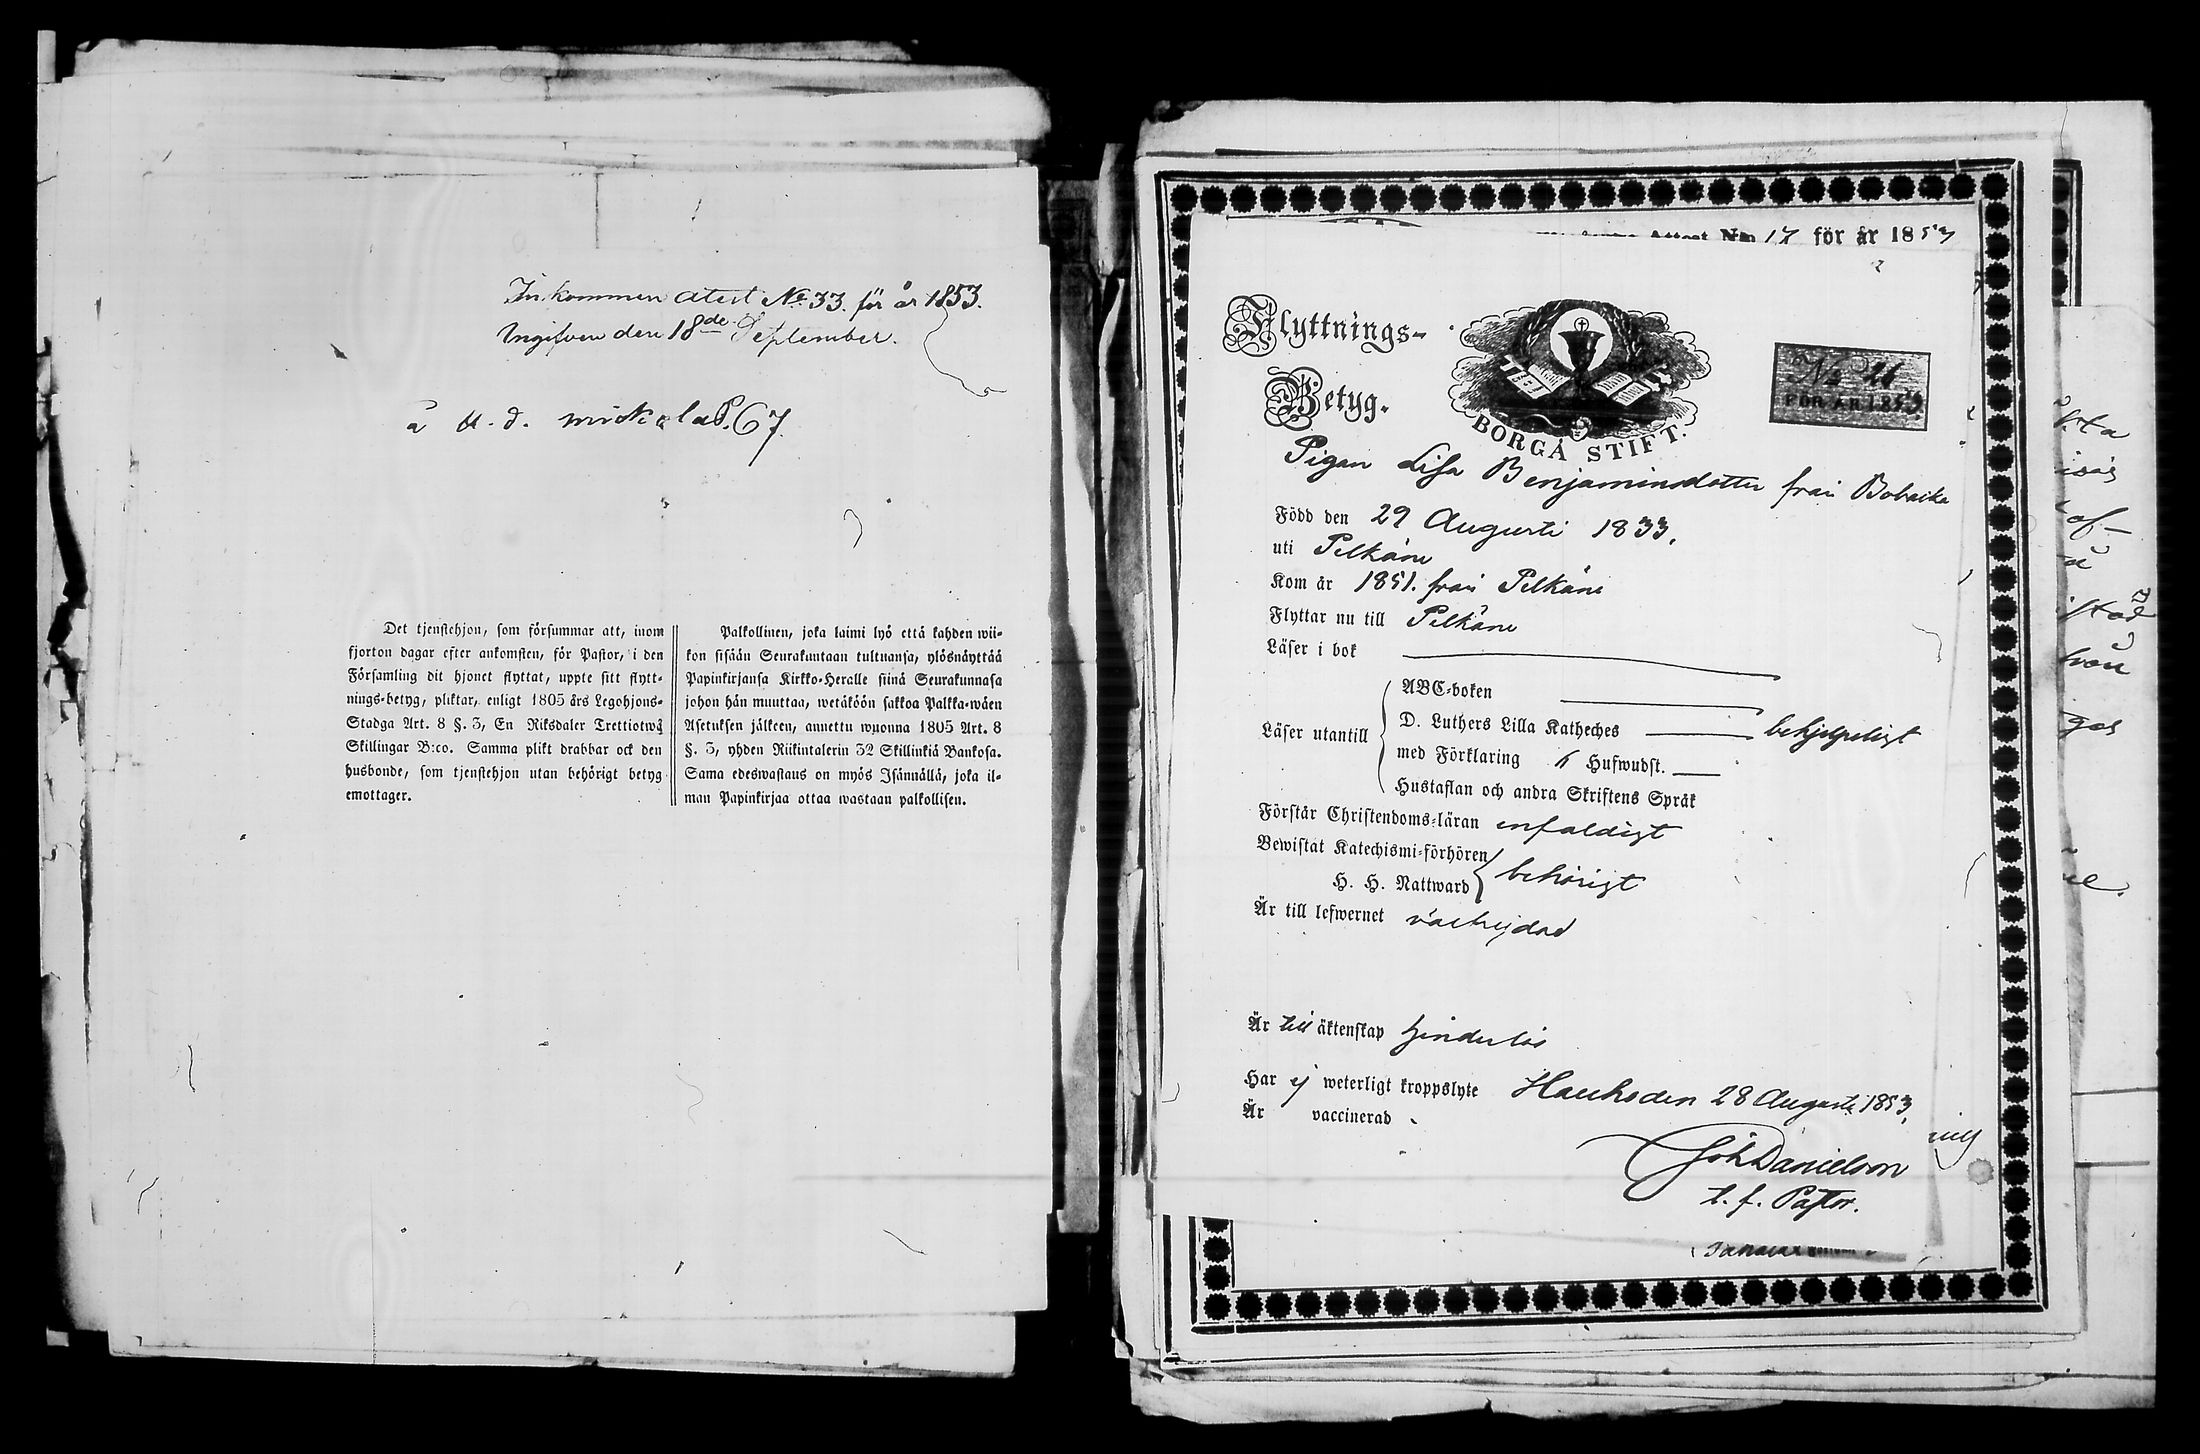 Inkommen atest No 33. för år 1853.
Ingifven den 18de September.
a u. d. mickola P. 67.
Det tjenstehjon, som försummar att, inom
fjorton dagar efter ankomsten, för Pastor, i den
Församling dit hjonet flyttat, uppte sitt flytt-
nings-betyg, pliktar, enligt 1805 års Legohjons-
Stadga Art. 8 §. 3, En Riksdaler Trettiotwå
Skillingar B:co. Samma plikt drabbar ock den
husbonde, som tjenstehjon utan behörigt betyg
emottager.
Palkollinen, joka laimi lyö että kahden wii-
kon sisään Seurakuntaan tultuansa, ylösnäyttää
Papinkirjansa Kirkko-Heralle siinä Seurakunnasa
johon hän muuttaa, wetäköön sakkoa Palkka-wäen
Asetuksen jälkeen, annettu wuonna 1805 Art. 8
§. 3, yhden Riikintalerin 32 Skillinkiä Bankosa.
Sama edeswastaus on myös Isännällä, joka il-
man Papinkirjaa ottaa wastaan palkollisen.
Attest No 17 för år 1853
Flyttnings-
Betyg.
BORGÅ STIFT.
No 21
FÖR ÅR 1853
Pigan Lisa Benjaminsdotter från
Född den 29 Augusti 1833.
uti Pelkäne
Kom år 1851. från Pelkäne
Flyttar nu till Pelkäne
Läser i bok
Läser utantill
ABC-boken
D. Luthers Lilla Katheches behjelpeligt
med Förklaring Hufwudst.
Hustaflan och andra Skriftens Språk
Förstår Christendoms-läran enfaldigt
Bewistat Katechismi-förhören
H. H. Nattward behörigt
Är till lefwernet välfrejdad
Är till äktenskap hinderlös
Har ej weterligt kroppslyte Hauho den 28 Augusti 1853,
Är vaccinerad
Joh Danielson
t. f. Pastor.